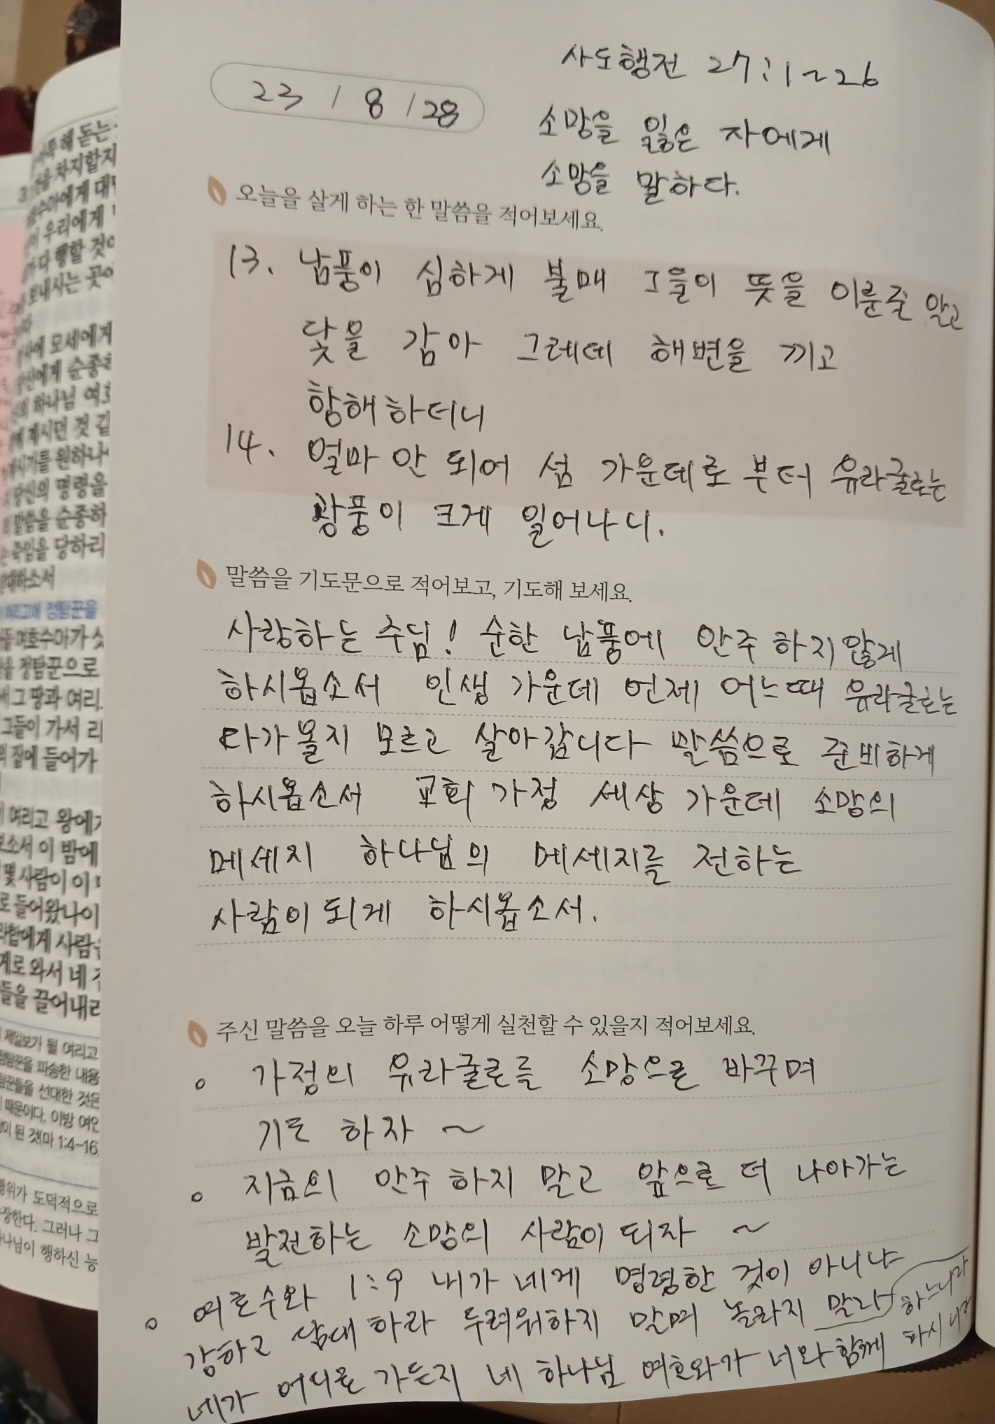 사도행전 27:1~26
23 / 8 / 28
소망을 잃은 자에게
소망을 말하다.
오늘을 살게 하는 한 말씀을 적어보세요.
13. 남풍이 심하게 불매 그들이 뜻을 이룬줄 알고
닻을 감아 그레데 해변을 끼고
항해하더니
14. 얼마 안 되어 섬 가운데로 부터 유라굴로는
광풍이 크게 일어나니.
말씀을 기도문으로 적어보고, 기도해 보세요.
사랑하는 주님! 순한 남풍에 안주 하지않게
하시옵소서 인생 가운데 언제 어느때 유라굴로는
다가올지 모르고 살아갑니다 말씀으로 준비하게
하시옵소서 교회 가정 세상 가운데 소망의
메세지 하나님의 메세지를 전하는
사람이 되게 하시옵소서.
주신 말씀을 오늘 하루 어떻게 실천할 수 있을지 적어보세요.
o 가정의 유라굴로를 소망으로 바꾸며
기도 하자 ~
o 지금의 안주 하지 말고 앞으로 더 나아가는
발전하는 소망의 사람이 되자 ~
o 여호수와 1:9 내가 네게 명령한 것이 아니냐
강하고 담대 하라 두려워하지 말며 놀라지 말라
네가 어디로 가든지 네 하나님 여호와가 너와 함께 하느니라
하시니라
사에 모세에게
의 하나님 여호
해 계시던 것 같
당신의 명령을
말씀을 순종하
죽임을 당하리
대하소서
여리고에 정탐꾼을
들 여호수아가 싯
을 정탐꾼으로
서 그 땅과 여리
그들이 가서 라
의 집에 들어가
여리고 왕에게
보소서 이 밤에
몇 사람이 이
로 들어왔나이
라합에게 사람을
게로 와서 네 집
들을 끌어내라